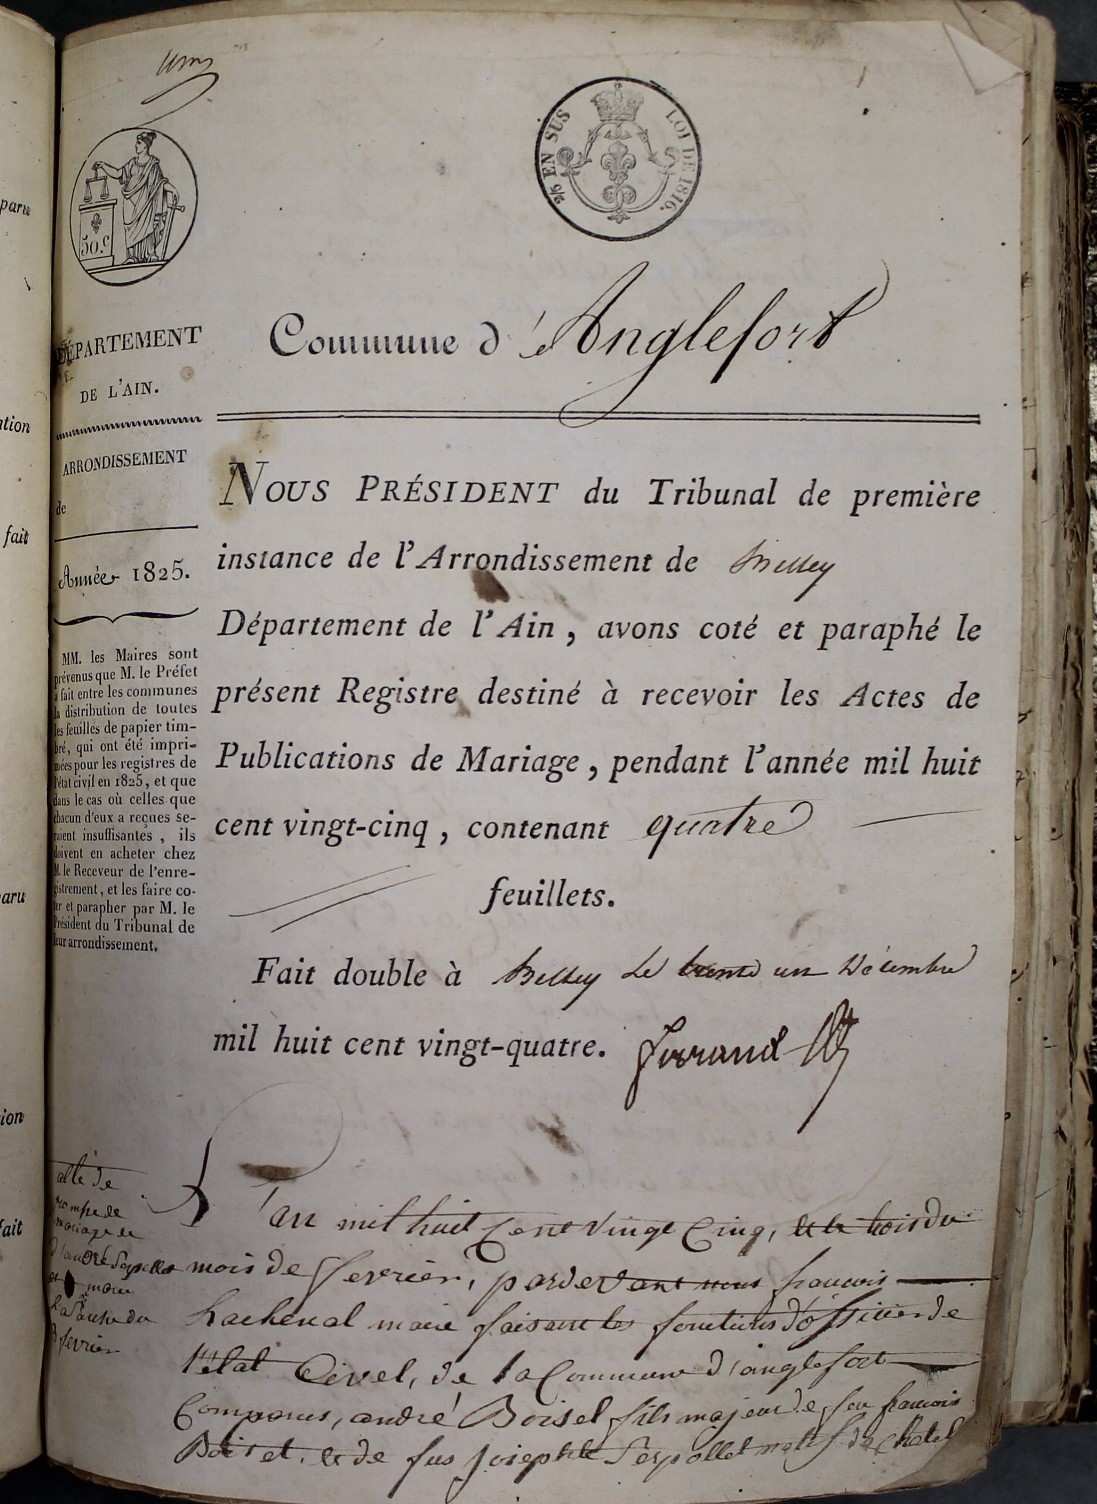 2/6 EN SUS
LOI DE 1816.
50.c
DÉPARTEMENT
DE L'AIN.
ARRONDISSEMENT
de
Année 1825.
MM. les Maires sont
prévenus que M. le Préfet
a fait entre les communes
la distribution de toutes
les feuilles de papier tim-
bré, qui ont été impri-
mées pour les registres de
l'état civil en 1825, et que
dans le cas où celles que
chacun d'eux a reçues se-
raient insuffisantes, ils
doivent en acheter chez
M. le Receveur de l'enre-
gistrement, et les faire co-
ter et parapher par M. le
Président du Tribunal de
leur arrondissement.
Commune d'Anglefort
NOUS PRÉSIDENT du Tribunal de première
instance de l'Arrondissement de Belley
Département de l'Ain, avons coté et paraphé le
présent Registre destiné à recevoir les Actes de
Publications de Mariage, pendant l'année mil huit
cent vingt-cinq, contenant quatre
feuillets.
Fait double à Belley le trente un Décembre
mil huit cent vingt-quatre.
mariage
fevrier
L'an mil huit Cent vingt Cinq, et le trois du
mois de fevrier, pardevant nous francois
hachenal maire faisant les fonctions d'officier de
l'etat Civel, de la Commune d'anglefort
Comparus, andré Boisel fils majeur de feu francois
Boiset, et de Josephte Serpollet